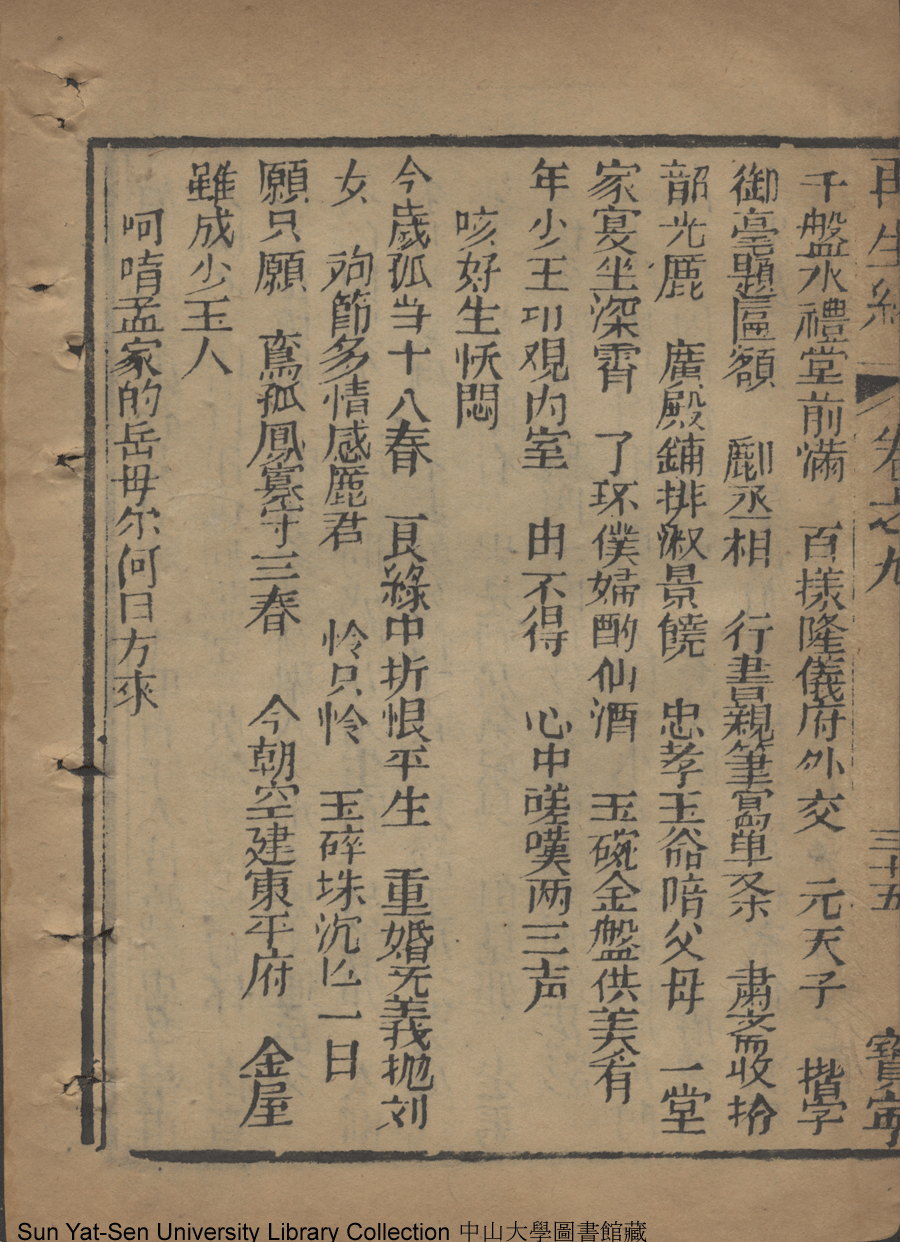 再生緣 卷之九 三十五 寶寧
千盤水禮堂前滿 百樣隆儀府外交 元天子 揩字
御毫題匾額 酈丞相 行書親筆寫单条 肅斋收拾
韶光麗 廣殿鋪排淑景饒 忠孝王爺陪父母 一堂
家宴坐深霄 了环僕婦酌仙酒 玉碗金盤供美肴
年少王 覌内室 由不得 心中嗟嘆两三声
咳好生恹悶
今歲孤当十八春 良緣中折恨平生 重婚无義抛刘
女 殉節多情感鹿君 怜只怜 玉碎珠沉一日
願只願 鸾孤鳳寡守三春 今朝空建東平府 金屋
雖成少玉人
呵唷孟家的岳母尔何日方來
Sun Yat-Sen University Library Collection 中山大學圖書館藏